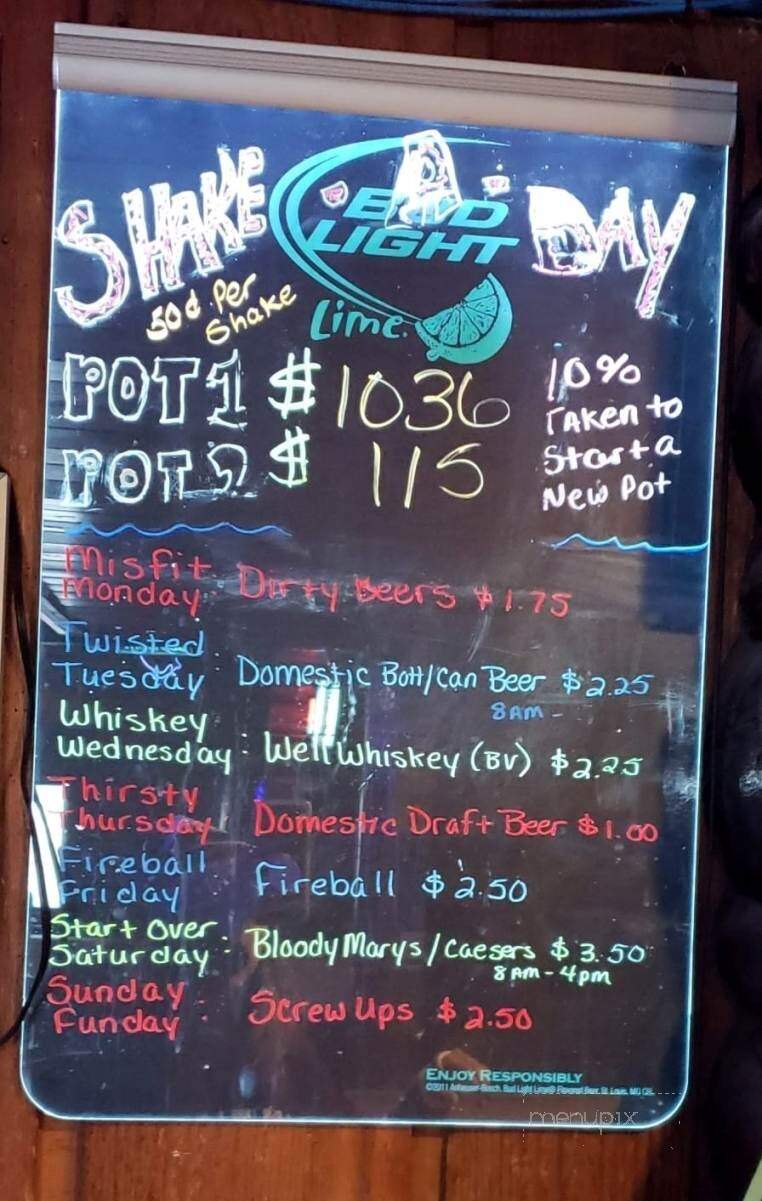 SHAKE ·A· DAY
BUD
LIGHT
Lime
50¢ Per
Shake
POT 1 $ 1036
POT 2 $ 115
10%
TAKen to
Start a
New Pot
Misfit
Monday: Dirty Beers $1.75
Twisted
Tuesday Domestic Bott/Can Beer $2.25
8AM -
Whiskey
Wednesday: Well Whiskey (BV) $2.25
Thirsty
Thursday Domestic Draft Beer $1.00
Fireball
Friday Fireball $2.50
Start Over
Saturday: Bloody Marys/Caesers $3.50
8AM-4pm
Sunday
Funday: Screw Ups $2.50
ENJOY RESPONSIBLY
©2011 Anheuser-Busch, Bud Light Lime® Flavored Beer, St. Louis, MO
menupix